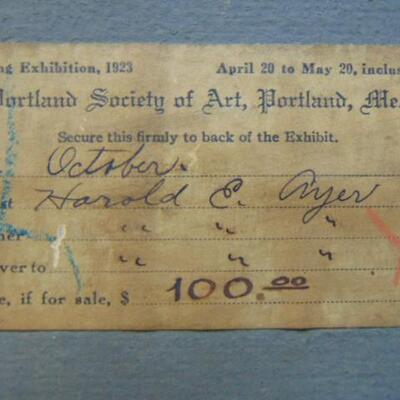 ng Exhibition, 1923 April 20 to May 20, inclus
Portland Society of Art, Portland, Me.
Secure this firmly to back of the Exhibit.
October.
st Harold E. Ayer
ner " " "
ver to " " "
e, if for sale, $ 100.00